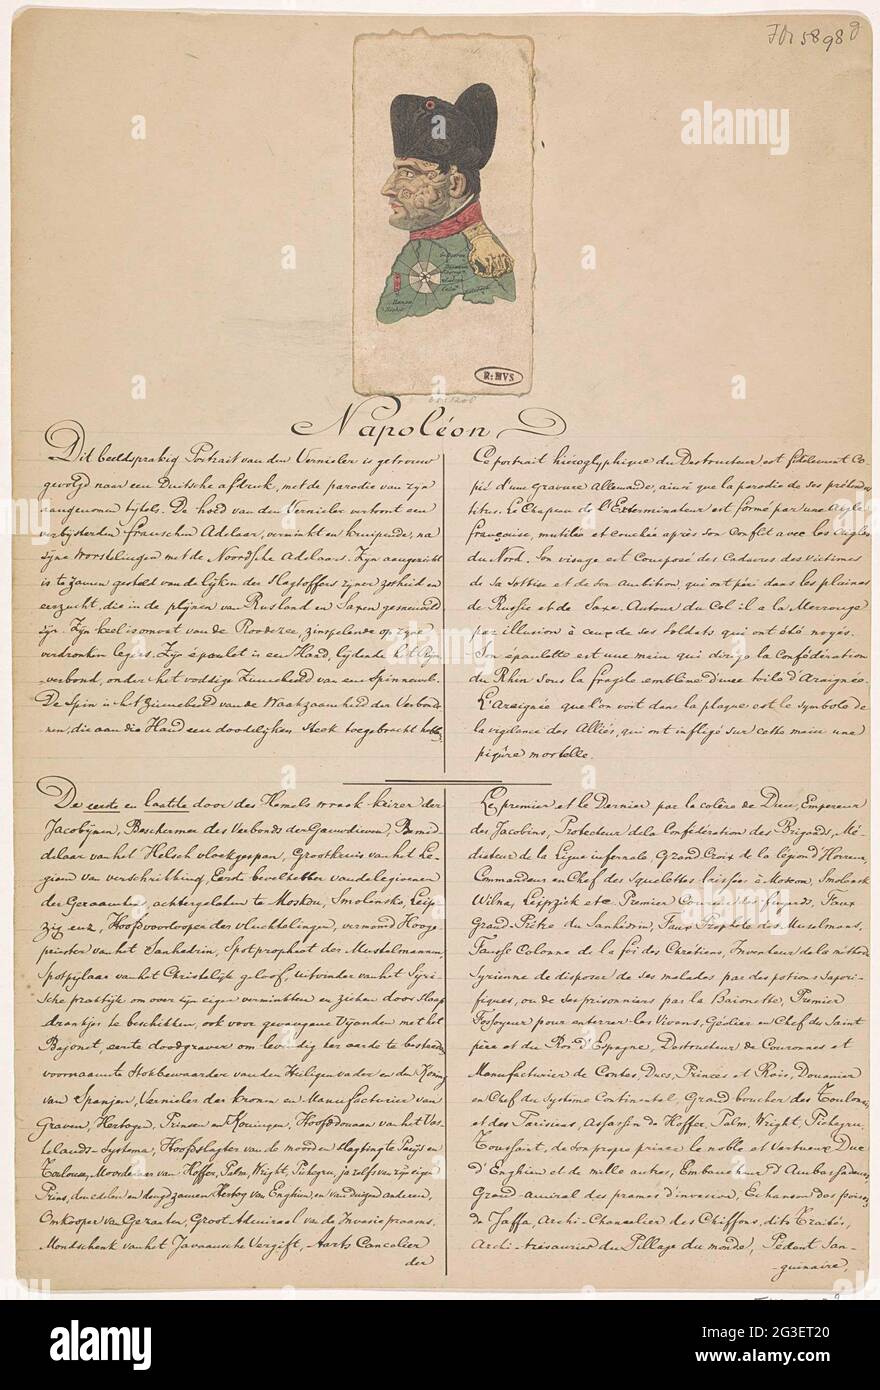 FM 5898 d
R: MVS
Napoléon
Dit beeldsprakig Portrait van den Vernieler is getrouw
gevolgd naar een Duitsche afdruk, met de parodie van zijn
aangenomen tijtels. De hoed van den Vernieler vertoont een
verbijsterden franschen Adelaar, verminkt en kruipende, na
zijne worstelingen met de Noordsche Adelaars. Zijn aangezicht
is te zamen gesteld van de lijken der Slagtoffers zijner zotheid en
eerzucht, die in de plijnen van Rusland en Saxen gesneuveld
zijn. Zijn keel is omvat van de Roodezee, zinspelende op zijne
verdronken legers. Zijn épaulet is een Hand, leidende het Rijn
verbond, onder het voddige Zinnebeeld van een Spinneweb.
De Spin is het Zinnebeeld van de Waakzaamheid der Verbonde-
nen, die aan die Hand een doodelijken steek toegebracht hebben.
Ce portrait hiéroglyphique du Destructeur est fidèlement Co-
pié d'une gravure Allemande, ainsi que la parodie de ses prétendus
titres. Le Chapeau de l'Exterminateur est formé par une Aigle
française, mutilée et couchée après son conflit avec les Aigles
du Nord. Son visage est composé des Cadavres des Victimes
de sa sottise et de son ambition, qui ont péri dans les plaines
de Russie et de Saxe. Autour du Col il a la Mer rouge
par illusion à ceux de ses Soldats qui ont été noyés.
Son épaulette est une main qui dirige la Confédération
du Rhin sous la fragile emblême d'une toile d'Araignée.
L'Araignée que l'on voit dans la plaque est le symbole de
la vigilance des Alliés, qui ont infligé sur cette main une
piqûre mortelle.
De eerste en laatste door des Hemels wraak keizer der
Jacobijnen, Beschermer des Verbonds der Gauwdieven, Bemid-
delaar van het Helsch vloekgespan, Grootkruis van het Le-
gioen van verschrikking, Eerste bevelhebber van de legioenen
der Geraamten, achtergelaten te Moskou, Smolensko, Leip-
zig enz, Hoofdvoorlooper der vluchtelingen, vermomd Hooge-
priester van het Sanhedrin, Spotpropheet der Muselmannen,
Spotpylaar van het Christelijk geloof, uitvinder van het Syri-
sche praktijk om over zijn eigen verminkten en zieken door Slaap-
drankjes te beschikken, ook voor gevangene Vijanden met het
Bajonet, eerste doodgraver om levendig ter aarde te bestellen
voornaamste Stokbewaarder van den Heiligen vader en den Koning
van Spanjen, Vernieler der kronen en Manufacturier van
Graven, Hertogen, Prinsen en Koningen, Hoofddouaan van het Vas-
telands-Systema, Hoofdslagter van de moord en slagting te Parijs en
Toulouse, Moordenaar van Hoffer, Palm, Wright, Pichegru, ja zelfs van zijn eigen
Prins, den edelen en deugdzamen Hertog van Enghien, en van duizend anderen,
Omkooper van Gezanten, Groot Admiraal van de Invasie praams,
Mondschenk van het Javaansche Vergift, Aarts Cancelier
der
Le premier et le Dernier par la colère de Dieu, Empereur
des Jacobins, Protecteur de la Confédération des Brigands, Mé-
diateur de la Ligue infernale, Grand Croix de la légion d'Horreur,
Commandeur en Chef des Squelettes laissées à Moscou, Smolensk
Wilna, Leipzick etc. Premier Coureur des fuyards, Faux
Grand-Prêtre du Sanhédrin, Faux Prophète des Muselmans,
Fausse Colonne de la foi des Chrétiens, Inventeur de la méthode
Syrienne de disposer de ses malades par des potions sapori-
fiques, ou de ses prisonniers par la Baionette, Premier
Fossoyeur pour enterrer les Vivans, Géolier en Chef du Saint
père et du Roi d'Espagne, Destructeur de Couronnes et
Manufacturier de Contes, Ducs, Princes et Rois, Douanier
en Chef du Système Continental, Grand boucher des Toulonois
et des Parisiens, Assassin de Hoffer, Palm, Wright, Pichegru,
Toussaint, de son propre prince le noble et vertueux Duc
d'Enghien et de mille autres, Embaucheur d'Ambassadeurs,
Grand-amiral des prames d'invasion, Echanson des poisons
de Jaffa, Archi-Chancelier des Chiffons, dits Traités,
Archi-trésaurier du Pillage du monde, Pédant San-
guinaire,
alamy
Image ID: 2G3ET20
www.alamy.com